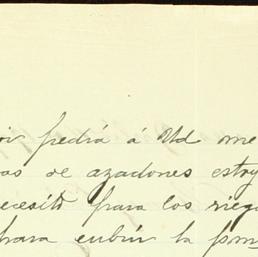 pedirá á Ud me
as de azadones estoy
necesito para los riego
para cubrir la